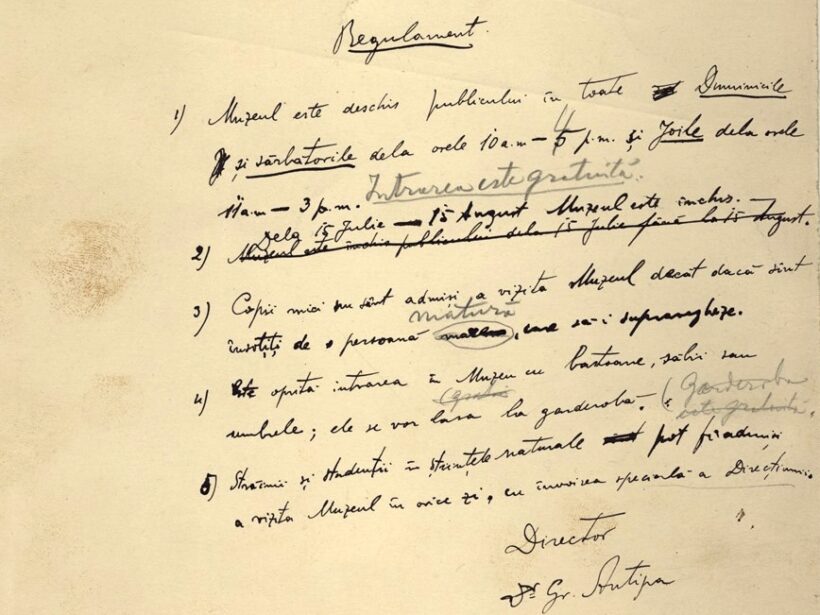 Regulament.
1) Muzeul este deschis publicului în toate Duminicile
și sărbătorile dela orele 10 a.m — 4 p.m. și Joile dela orele
11 a.m — 3 p.m. Intrarea este gratuită.
dela 15 Julie — 15 August Muzeul este închis. —
2) Muzeul este închis publicului dela 15 Julie până la 15 August.
3) Copii mici nu sânt admiși a vizita Muzeul decât dacă sînt
matură
însoțiți de o persoană, care să-i supravegheze.
4) Este oprită intrarea în Muzeu cu bastoane, săbii sau
umbrele; ele se vor lăsa la garderobă. (Garderoba
este gratuită.
5) Străinii și studenții în științele naturale pot fi admiși
a vizita Muzeul în orice zi, cu învoirea specială a Direcțiunii.
Director
Dr Gr. Antipa